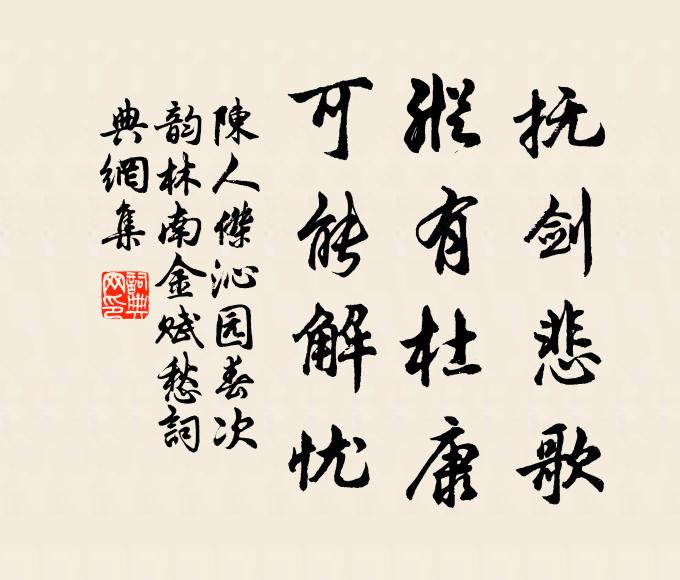 抚剑悲歌
纵有杜康
可能解忧
陳人傑沁园春次
韵林南金赋愁詞
典網集
詞典网印